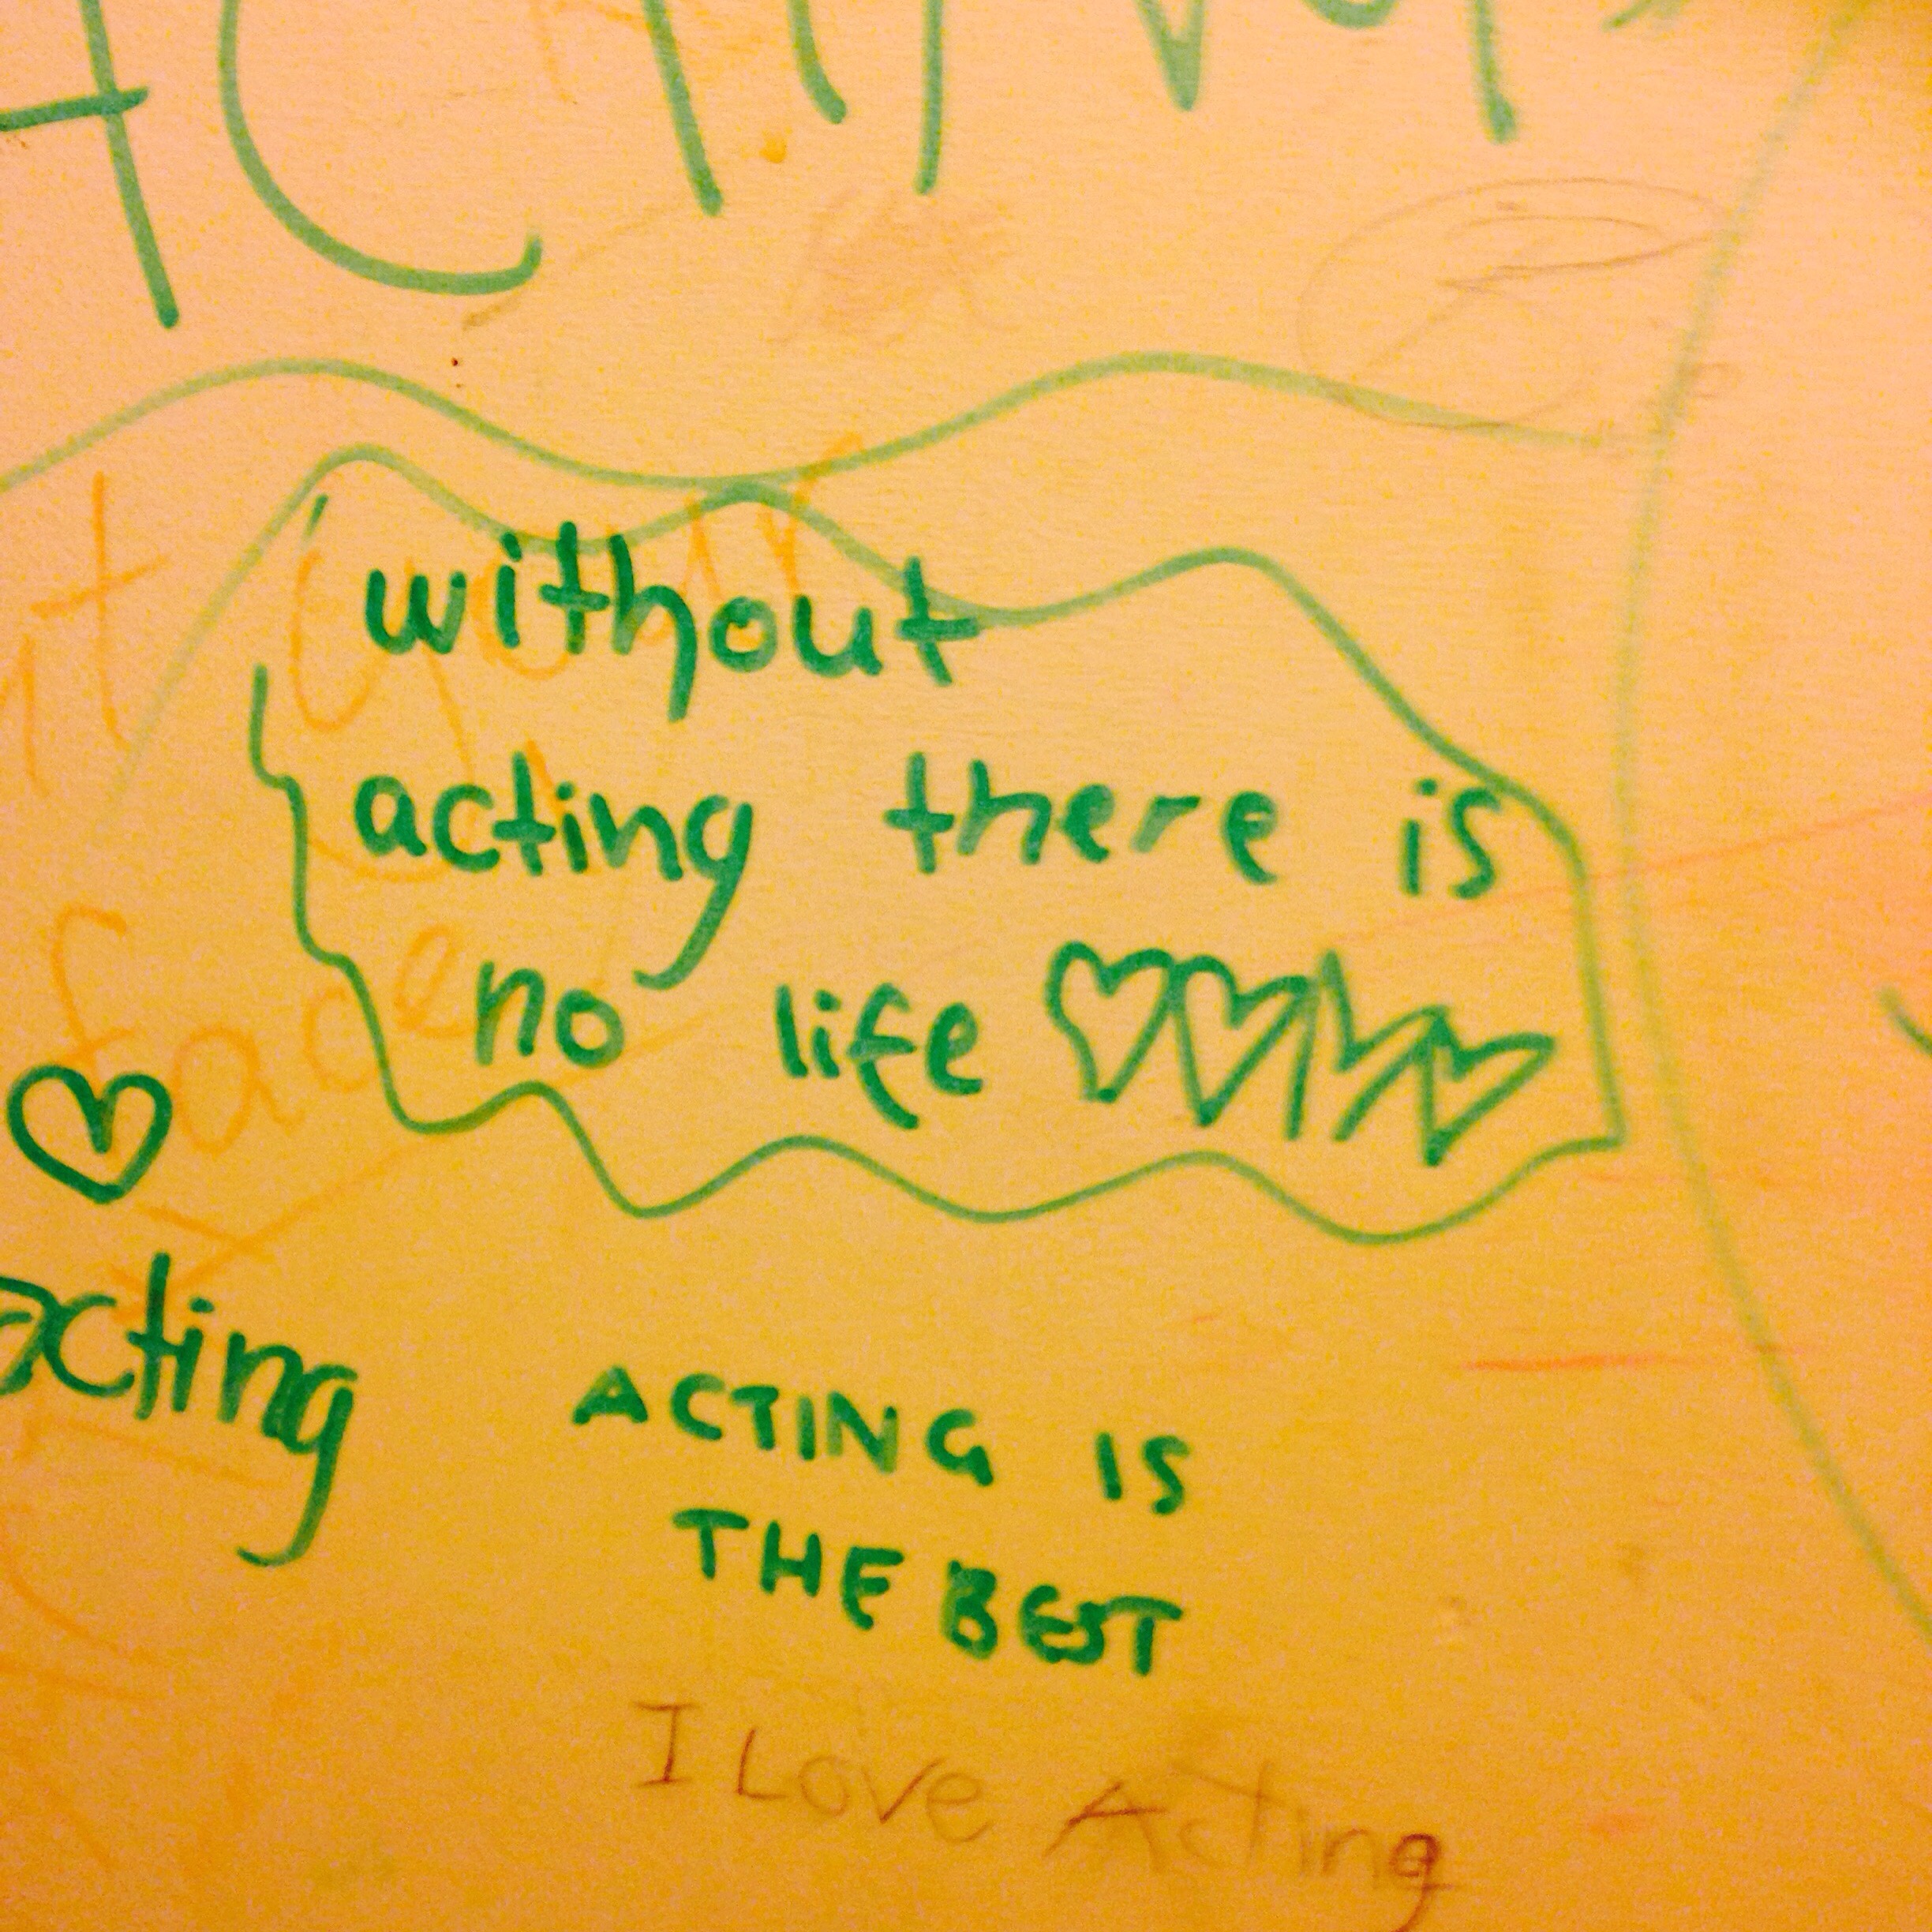 without
acting there is
no life
face
acting
ACTING IS
THE BEST
I Love Acting